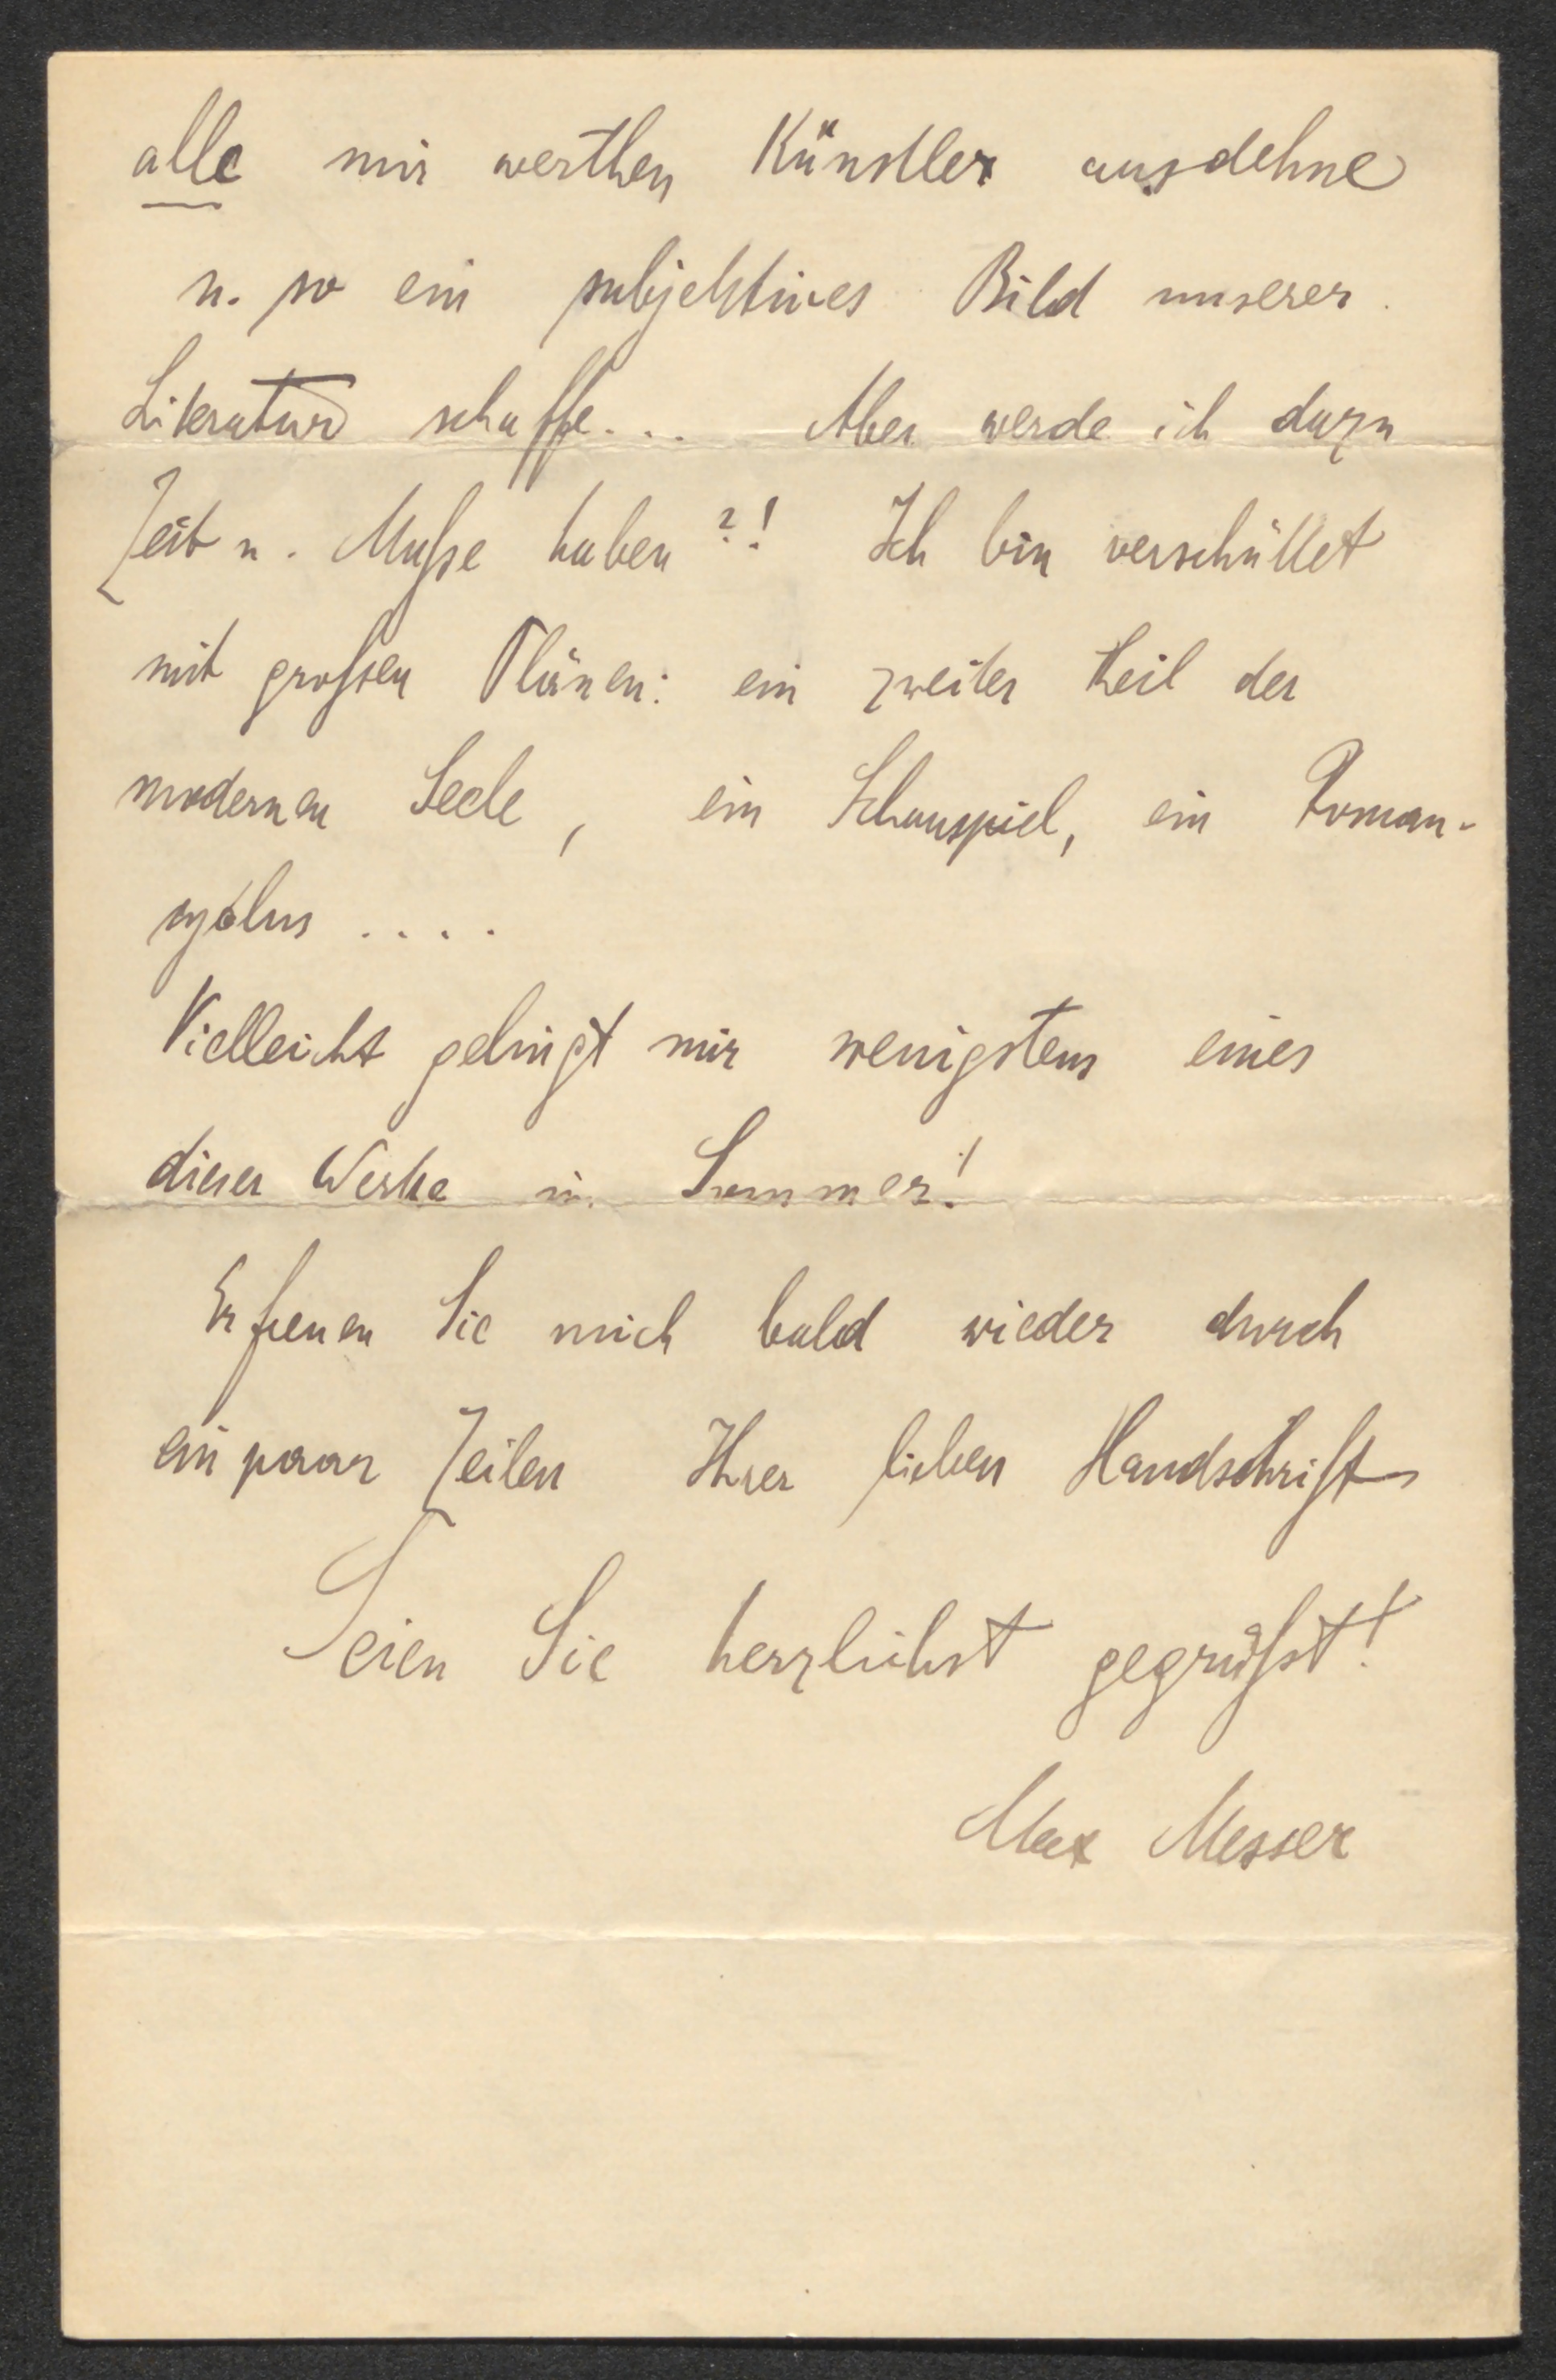 alle mir werthen Künstler ausdehne
u. so ein subjektives Bild unserer
Literatur schaffe... Aber werde ich dazu
Zeit u. Muße haben?! Ich bin verschüttet
mit großen Plänen: ein zweiter Theil der
modernen Seele, ein Schauspiel, ein Roman-
cyclus ....
Vielleicht gelingt mir wenigstens eines
dieser Werke im Sommer!
Erfreuen Sie mich bald wieder durch
ein paar Zeilen Ihrer lieben Handschrift
Seien Sie herzlichst gegrüßt!
Max Messer